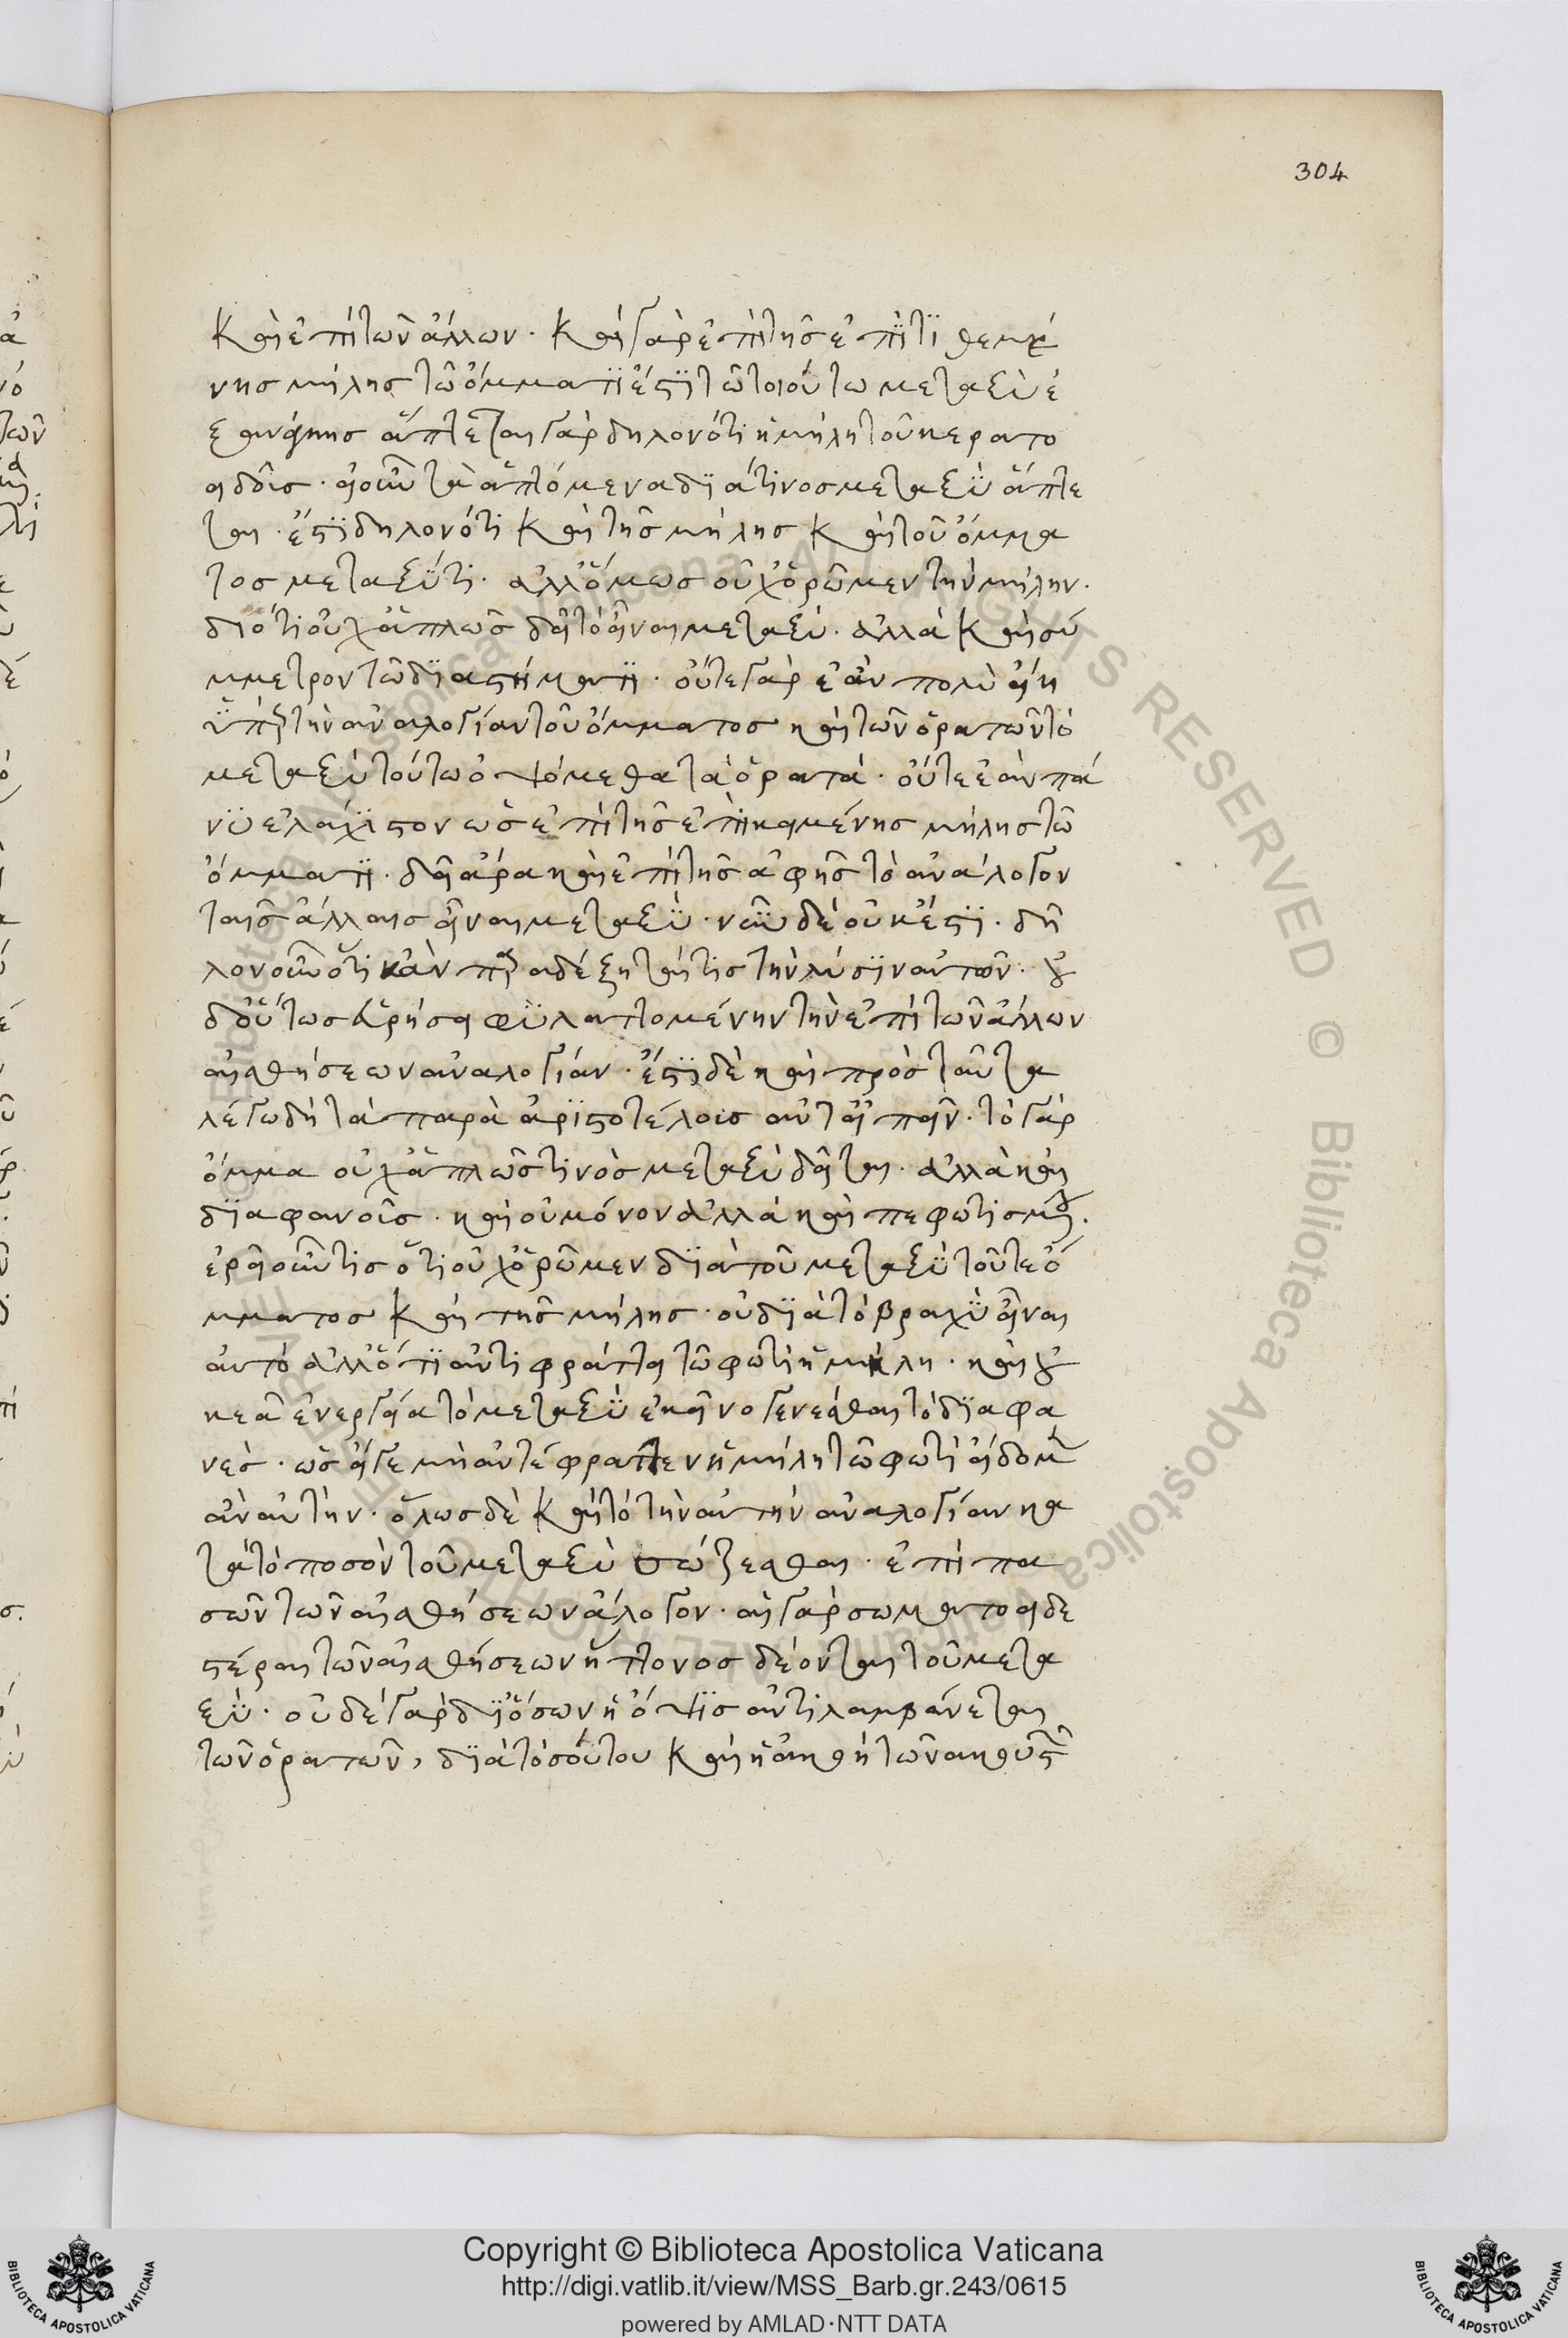 304
καὶ ἐπὶ τῶν ἄλλων. καὶ γὰρ ἐπὶ τῆς ἐπιτιθεμέ
νης μήλης τῶ ὄμματι ἔστι τῶ τοιούτω μεταξὺ ἐ
ξ ἀνάγκης ἅπτεται γὰρ δηλονότι ἡ μήλη τοῦ κερατο
ειδοῦς. εἰ οὖν τὰ ἁπτόμενα διά τινος μεταξὺ ἅπτε
ται. ἔστι δηλονότι καὶ τῆς μήλης καὶ τοῦ ὄμμα
τος μεταξύ τι. ἀλλ' ὅμως οὐχ ὁρῶμεν τὴν μήλην.
διότι οὐχ ἁπλῶς δεῖ τὸ εἶναι μεταξύ. ἀλλὰ καὶ σύ
μμετρον τῶ διαστήματι. οὔτε γὰρ ἐὰν πολὺ εἴη
ὑπὲρ τὴν ἀναλογίαν τοῦ ὄμματος καὶ τῶν ὁρατῶν τὸ
μεταξὺ τούτω ὀψόμεθα τὰ ὁρατά. οὔτε ἐὰν πά
νυ ἐλάχιστον ὡς ἐπὶ τῆς ἐπικειμένης μήλης τῶ
ὄμματι. δεῖ ἄρα καὶ ἐπὶ τῆς ἁφῆς τὸ ἀνάλογον
ταῖς ἄλλαις εἶναι μεταξύ. νῦν δὲ οὐκ ἔστι. δῆ
λον οὖν ὅτι κἂν παραδέξηταί τις τὴν λύσιν αὐτῶν.
οὕτως εὑρήσει φυλαττομένην τὴν ἐπὶ τῶν ἄλλων
αἰσθήσεων ἀναλογίαν. ἔστι δὲ καὶ πρὸς ταῦτα
λέγω δὴ τὰ παρὰ ἀριστοτέλους ἀντειπεῖν. τὸ γὰρ
ὄμμα οὐχ ἁπλῶς τινὸς μεταξὺ δεῖται. ἀλλὰ καὶ
διαφανοῦς. καὶ οὐ μόνον ἀλλὰ καὶ πεφωτισμένου.
ἐρεῖ οὖν τις ὅτι οὐχ ὁρῶμεν διὰ τοῦ μεταξὺ τοῦ τε ὄ
μματος καὶ τῆς μήλης. οὐ διὰ τὸ βραχὺ εἶναι
αὐτὸ ἀλλ' ὅτι ἀντιφράττει τῶ φωτὶ ἡ μήλη. καὶ οὐ
κ ἐᾶ ἐνεργεία τὸ μεταξὺ ἐκεῖνο γενέσθαι τὸ διαφα
νές. ὡς εἴγε μὴ ἀντέφραττεν ἡ μήλη τῶ φωτὶ εἴδομεν
ἂν αὐτήν. ὅλως δὲ καὶ τὸ τὴν αὐτὴν ἀναλογίαν κα
τὰ τὸ ποσὸν τοῦ μεταξὺ σώζεσθαι. ἐπὶ πα
σῶν τῶν αἰσθήσεων ἄλογον. αἱ γὰρ σωματοειδε
στέραι τῶν αἰσθήσεων ἥττονος δέονται τοῦ μετα
ξύ. οὐδὲ γὰρ δι' ὅσων ἡ ὄψις ἀντιλαμβάνεται
τῶν ὁρατῶν, διὰ τοσούτου καὶ ἡ ἀκοὴ τῶν ἀκουστῶν
Copyright © Biblioteca Apostolica Vaticana
http://digi.vatlib.it/view/MSS_Barb.gr.243/0615
powered by AMLAD·NTT DATA
BIBLIOTECA APOSTOLICA VATICANA
BIBLIOTECA APOSTOLICA VATICANA